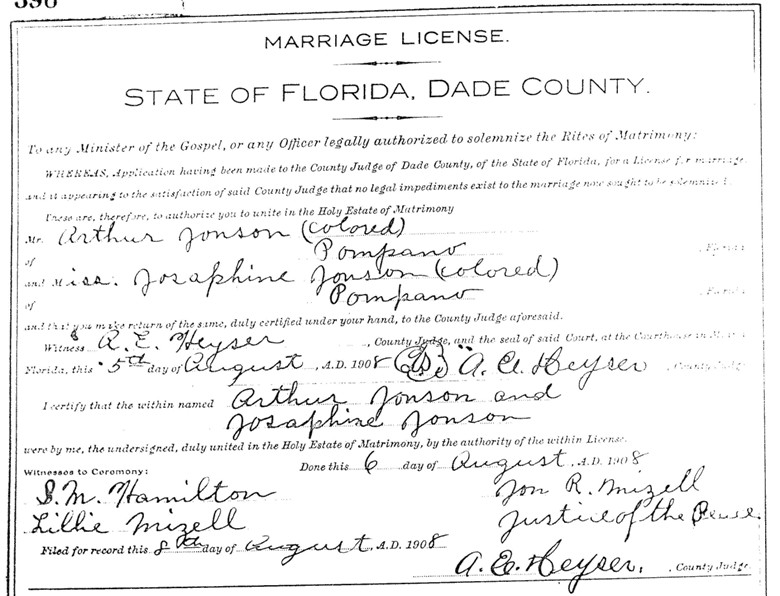 398
MARRIAGE LICENSE.
STATE OF FLORIDA, DADE COUNTY.
To any Minister of the Gospel, or any Officer legally authorized to solemnize the Rites of Matrimony:
WHEREAS, Application having been made to the County Judge of Dade County, of the State of Florida, for a License for marriage,
and it appearing to the satisfaction of said County Judge that no legal impediments exist to the marriage now sought to be solemnized,
These are, therefore, to authorize you to unite in the Holy Estate of Matrimony
Mr. Arthur Jonson (colored)
of Pompano , Florida
and Miss. Josaphine Jonson (colored)
of Pompano , Florida
and that you make return of the same, duly certified under your hand, to the County Judge aforesaid.
Witness A. E. Heyser , County Judge, and the seal of said Court, at the Courthouse in Miami
Florida, this 5th day of August , A.D. 1908 A. E. Heyser , County Judge
I certify that the within named Arthur Jonson and
Josaphine Jonson
were by me, the undersigned, duly united in the Holy Estate of Matrimony, by the authority of the within License.
Witnesses to Ceremony: Done this 6 day of August , A.D. 1908
S. M. Hamilton Jon R. Mizell
Lillie Mizell Justice of the Peace
Filed for record this 8th day of August , A.D. 1908
A. E. Heyser, , County Judge